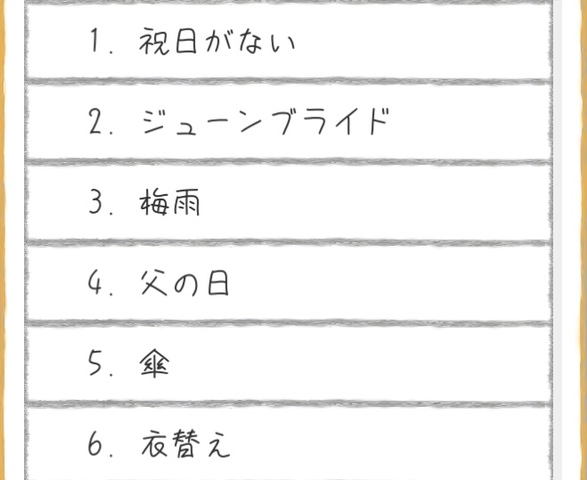 1. 祝日がない
2. ジューンブライド
3. 梅雨
4. 父の日
5. 傘
6. 衣替え